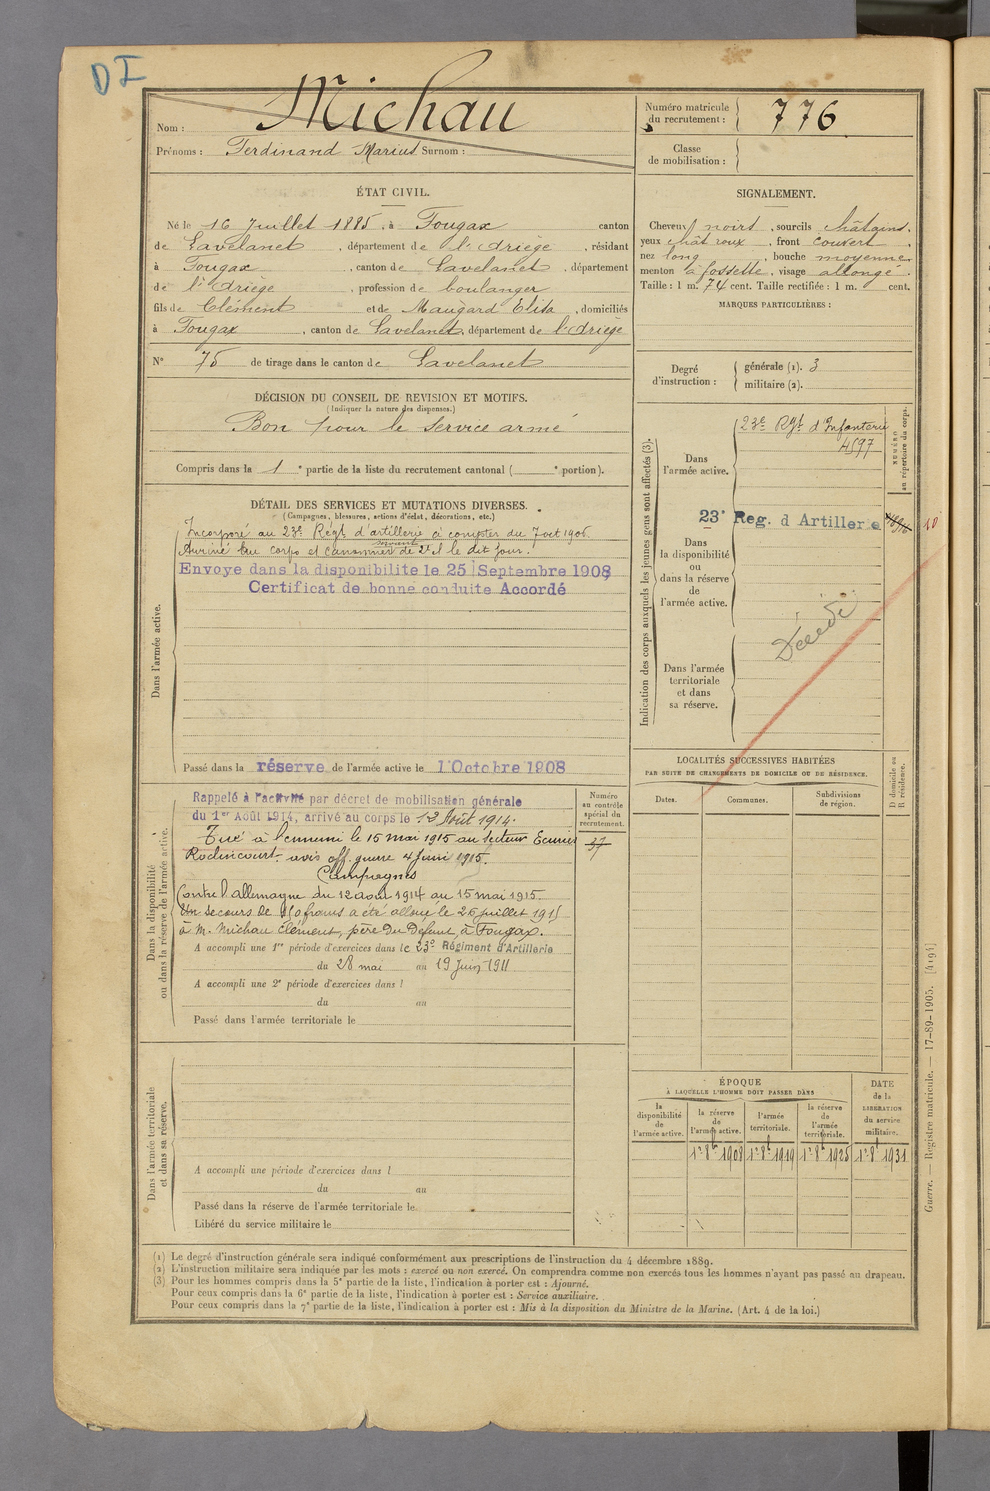 DI
Nom : Michau
Prénoms : Ferdinand Marius Surnom :
Numéro matricule
du recrutement : 776
Classe
de mobilisation :
ÉTAT CIVIL.
Né le 16 Juillet 1885, à Fougax canton
de Lavelanet, département de l'Ariège, résidant
à Fougax, canton de Lavelanet, département
de l'Ariège, profession de boulanger
fils de Clément et de Maugard Elisa, domiciliés
à Fougax, canton de Lavelanet, département de l'Ariège
N° 75 de tirage dans le canton de Lavelanet
SIGNALEMENT.
Cheveux noirs, sourcils châtains,
yeux chât roux, front couvert,
nez long, bouche moyenne
menton à fossette, visage allongé.
Taille : 1 m. 74 cent. Taille rectifiée : 1 m. cent.
MARQUES PARTICULIÈRES :
Degré
d'instruction :
générale (1). 3
militaire (2).
DÉCISION DU CONSEIL DE REVISION ET MOTIFS.
(Indiquer la nature des dispenses.)
Bon pour le service armé
Compris dans la 1e partie de la liste du recrutement cantonal ( e portion).
DÉTAIL DES SERVICES ET MUTATIONS DIVERSES.
(Campagnes, blessures, actions d'éclat, décorations, etc.)
Dans l'armée active.
Incorporé au 23e Régt d'artillerie à compter du 7 oct 1906.
Arrivé au corps et canonnier servant de 2e cl le dit jour.
Envoye dans la disponibilite le 25 Septembre 1908
Certificat de bonne conduite Accordé
Passé dans la réserve de l'armée active le 1 Octobre 1908
Indication des corps auxquels les jeunes gens sont affectés (3).
NUMÉRO
au répertoire du corps.
Dans
l'armée active.
23e Rgt d'Infanterie
4597
23e Reg. d Artillerie
Dans
la disponibilité
ou
dans la réserve
de
l'armée active.
Décédé
Dans l'armée
territoriale
et dans
sa réserve.
LOCALITÉS SUCCESSIVES HABITÉES
PAR SUITE DE CHANGEMENTS DE DOMICILE OU DE RÉSIDENCE.
Dates.
Communes.
Subdivisions
de région.
D domicile ou
R résidence.
Dans la disponibilité
ou dans la réserve de l'armée active.
Numéro
au contrôle
spécial du
recrutement.
37
Rappelé à l'activité par décret de mobilisation générale
du 1er Août 1914, arrivé au corps le 12 Août 1914.
Tué à l'ennemi le 15 mai 1915 au secteur Ecurie
Roclincourt. avis off. guerre 4 Juin 1915.
Campagnes
Contre l'allemagne du 12 août 1914 au 15 mai 1915.
Un secours de 150 francs a été alloué le 26 juillet 1915
à M. Michau Clément, père du Défunt, à Fougax.
A accompli une 1re période d'exercices dans le 23e Régiment d'Artillerie
du 28 mai au 19 Juin 1911
A accompli une 2e période d'exercices dans l
du au
Passé dans l'armée territoriale le
Dans l'armée territoriale
et dans sa réserve.
A accompli une période d'exercices dans l
du au
Passé dans la réserve de l'armée territoriale le
Libéré du service militaire le
ÉPOQUE
À LAQUELLE L'HOMME DOIT PASSER DANS
la
disponibilité
de
l'armée active.
la réserve
de
l'armée active.
l'armée
territoriale.
la réserve
de
l'armée
territoriale.
DATE
de la
LIBÉRATION
du service
militaire.
1er 8bre 1908 1er 8bre 1919 1er 8bre 1925 1er 8bre 1931
Guerre. — Registre matricule. — 17-89-1905. [4194]
(1) Le degré d'instruction générale sera indiqué conformément aux prescriptions de l'instruction du 4 décembre 1889.
(2) L'instruction militaire sera indiquée par les mots : exercé ou non exercé. On comprendra comme non exercés tous les hommes n'ayant pas passé au drapeau.
(3) Pour les hommes compris dans la 5e partie de la liste, l'indication à porter est : Ajourné.
Pour ceux compris dans la 6e partie de la liste, l'indication à porter est : Service auxiliaire.
Pour ceux compris dans la 7e partie de la liste, l'indication à porter est : Mis à la disposition du Ministre de la Marine. (Art. 4 de la loi.)